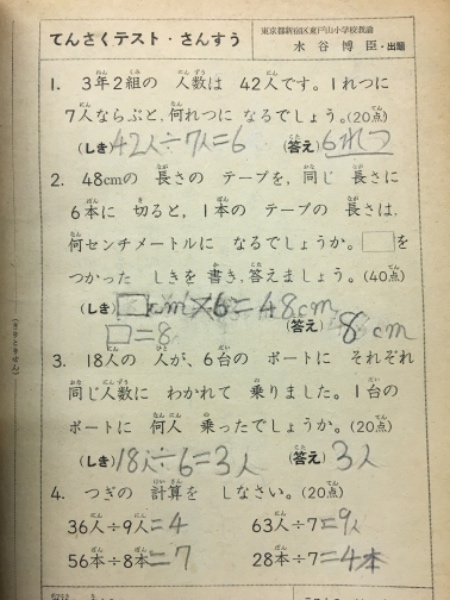 てんさくテスト・さんすう
東京都新宿区東戸山小学校教諭
水谷博臣・出題
1. 3年2組の 人数は 42人です。1れつに
7人ならぶと,何れつに なるでしょう。(20点)
(しき) 42人÷7人=6 (答え) 6れつ
2. 48cmの 長さの テープを,同じ 長さに
6本に 切ると,1本の テープの 長さは,
何センチメートルに なるでしょうか。□を
つかった しきを 書き,答えましょう。(40点)
(しき) □cm×6=48cm
□=8 (答え) 8cm
3. 18人の 人が,6台の ボートに それぞれ
同じ人数に わかれて 乗りました。1台の
ボートに 何人 乗ったでしょうか。(20点)
(しき) 18人÷6=3人 (答え) 3人
4. つぎの 計算を しなさい。(20点)
36人÷9人=4 63人÷7=9人
56本÷8本=7 28本÷7=4本
(きりとりせん)